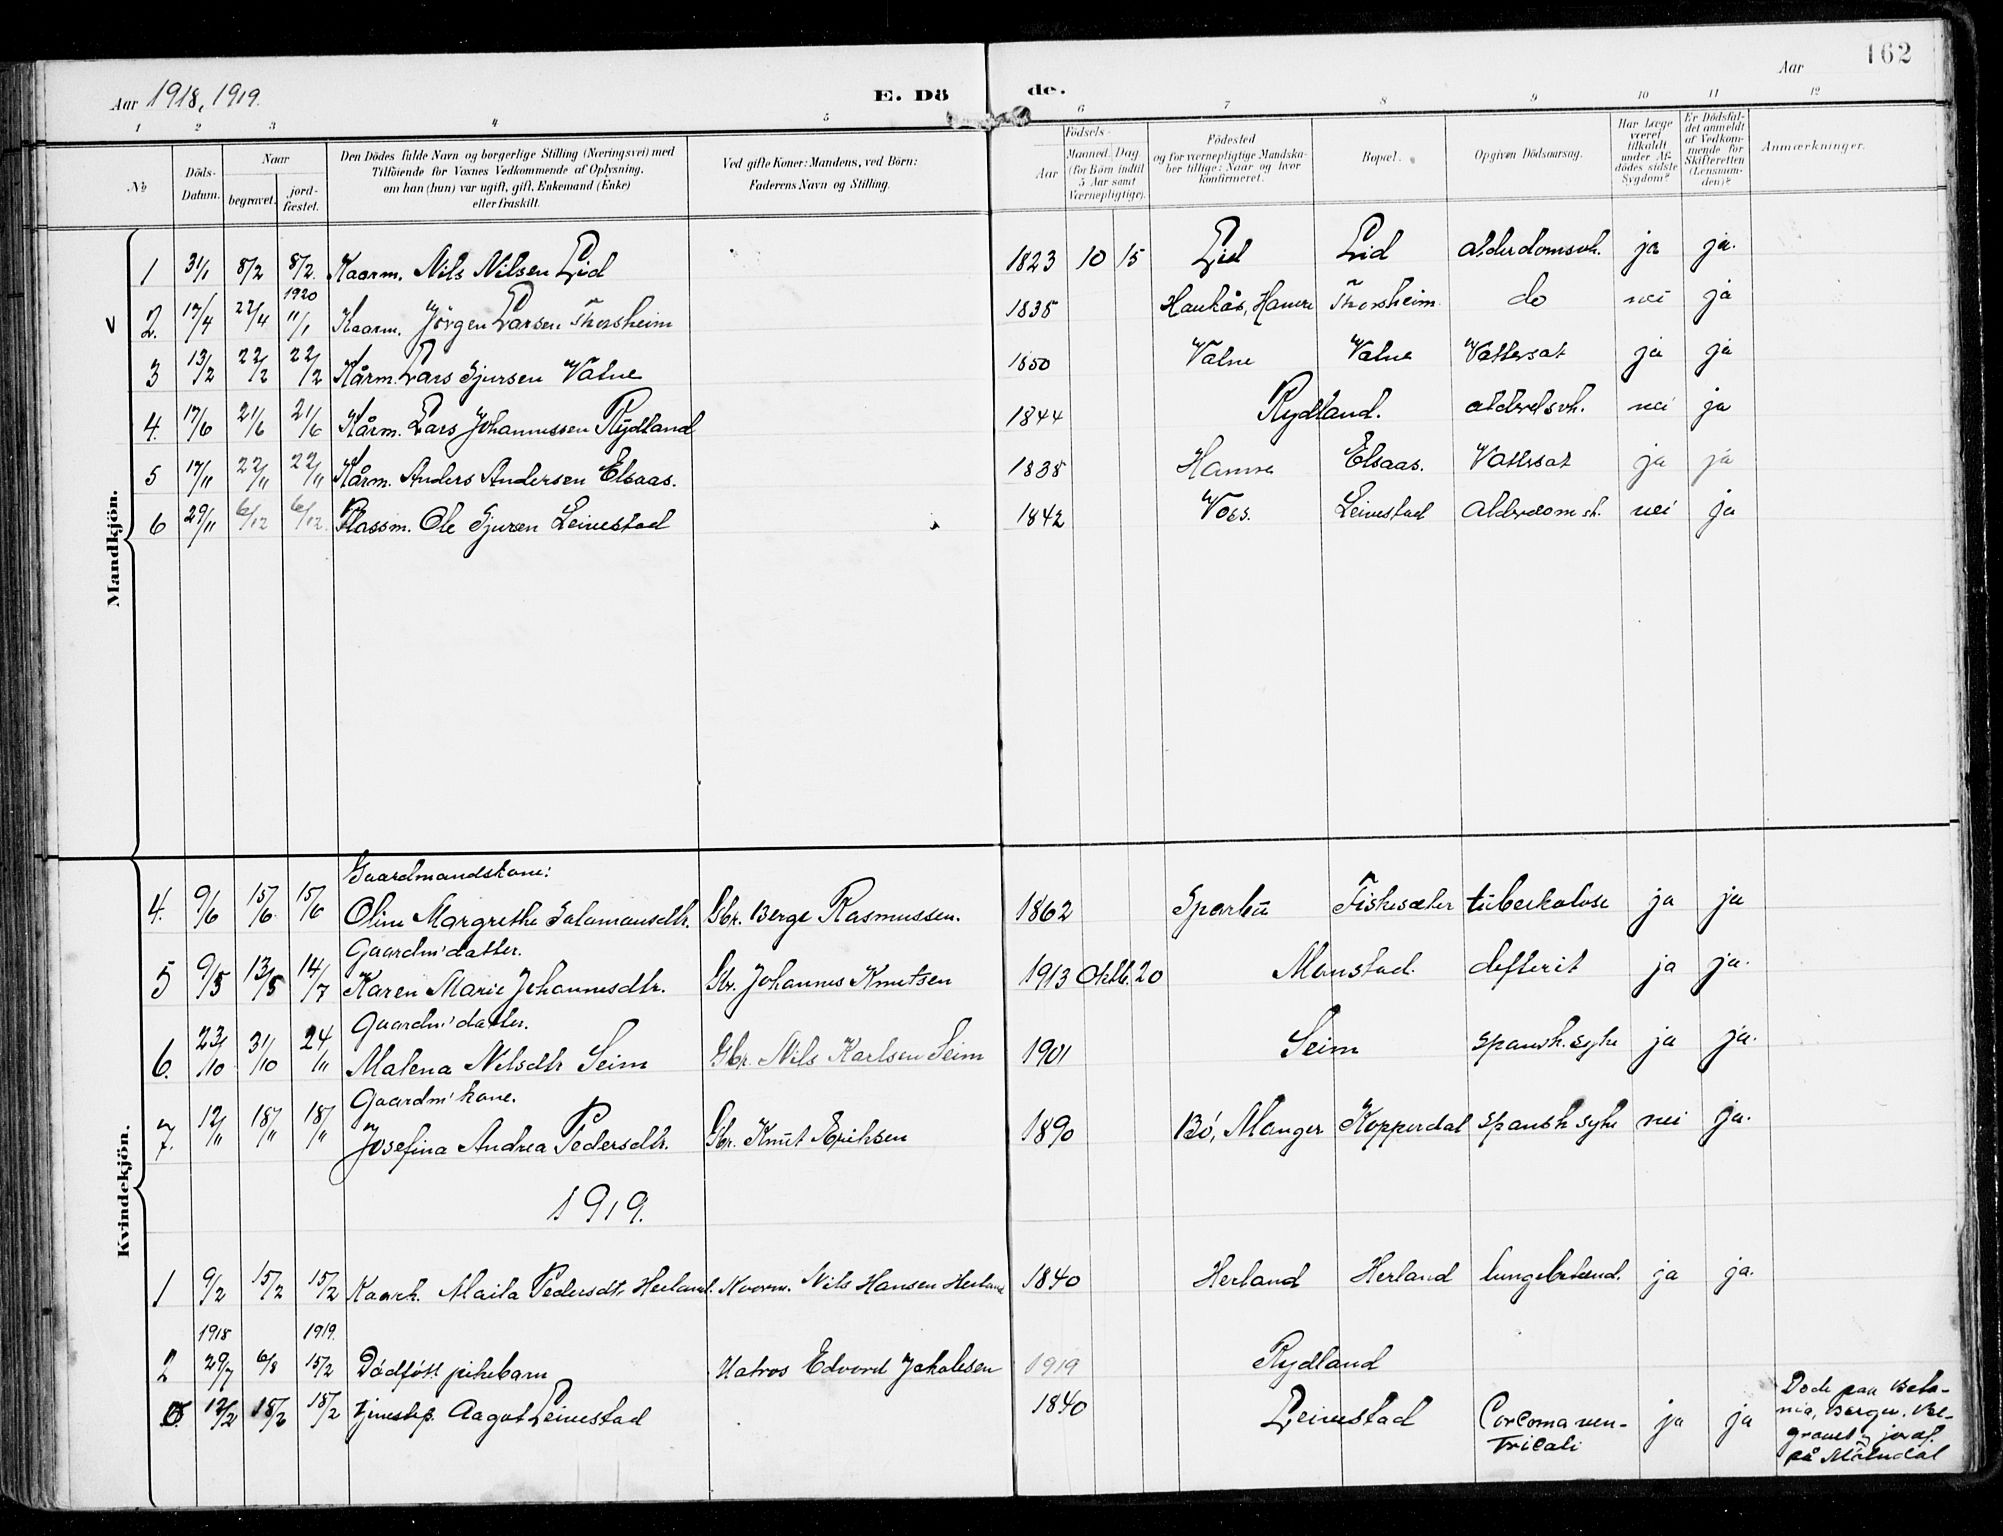 162
Aar 1918, 1919.
E. Dö
de.
Aar
1 2 3 4 5 6 7 8 9 10 11 12
№
Döds-Datum.
Naar
begravet.
jord-fæstet.
Den Dödes fulde Navn og borgerlige Stilling (Næringsvei) med
Tilföiende for Voxnes Vedkommende af Oplysning,
om han (hun) var ugift, gift, Enkemand (Enke)
eller fraskilt.
Ved gifte Koner: Mandens, ved Börn:
Faderens Navn og Stilling.
Födsels-
Aar
Maaned. Dag
(for Börn indtil
5 Aar samt
Værnepligtige).
Födested
og for værnepligtige Mandska-
ber tillige: Naar og hvor
konfirmeret.
Bopæl.
Opgiven Dödsaarsag.
Har Læge
været
tilkaldt
under Af-
dödes sidste
Sygdom?
Er Dödsfal-
det anmeldt
af Vedkom-
mende for
Skifteretten
(Lensman-
den)?
Anmærkninger.
Mandkjön.
1 31/1 8/2 8/2 Kaarm. Nils Nilsen Eid 1823 10 15 Eid Eid alderdomsvh. ja ja.
1920
v 2. 17/4 22/4 11/1 Kaarm. Jörgen Larsen Thorsheim 1838 Haukås, Hamre Thorsheim do nei ja
3 13/2 22/2 22/2 Kårm. Lars Gjursen Vatne 1850 Vatne Vatne Vattersot ja ja
4. 17/6 21/6 21/6 Kårm. Lars Johannessen Rydland 1844 Rydland. alderdsvh. nei ja
5 17/11 22/11 22/11 Kårm. Anders Andersen Elsaas. 1838 Hamre Elsaas. Vattersot ja ja
6 29/11 6/12 6/12 Plassm. Ole Gjursen Leinestad 1842 Voss. Leinestad Alderdomsh. nei ja
Kvindekjön.
Gaardmandskone:
4. 9/6 15/6 15/6 Oline Margrethe Salamonsdtr. Gbr. Berge Rasmussen. 1862 Sparbu Fiskesæter tuberkolose ja ja
Gaardm' datter.
5 9/5 13/5 14/7 Karen Marie Johannesdtr. Gbr. Johannes Knutsen 1913 Oktb. 20 Monstad. defterit ja ja.
Gaardm' datter.
6. 23/10 31/10 24/11 Malena Nilsdtr Seim Gbr. Nils Karlsen Seim 1901 Seim spansk. syke ja ja.
Gaardm' kone.
7. 12/11 18/11 18/11 Josefina Andrea Pedersdtr. Gbr. Knut Eriksen 1890 Bö, Manger Kopperdal spansk syke nei ja.
1919.
1 9/2 15/2 15/2 Kaark. Marta Pedersdt. Herland. Kaarm. Nils Hansen Herland 1840 Herland Herland lungebetænd. ja ja.
1918 1919.
2 29/7 6/8 15/2 Dödfött pikebarn Matros Edvard Jakobsen 1919 Rydland
12/2 18/2 18/2 tjenestep. Aagot Leinestad 1840 Leinestad Carcoma ven-
triculi ja ja
Döde paa Beta-
nia, Bergen. Be-
gravet og jordf.
på Möhndal